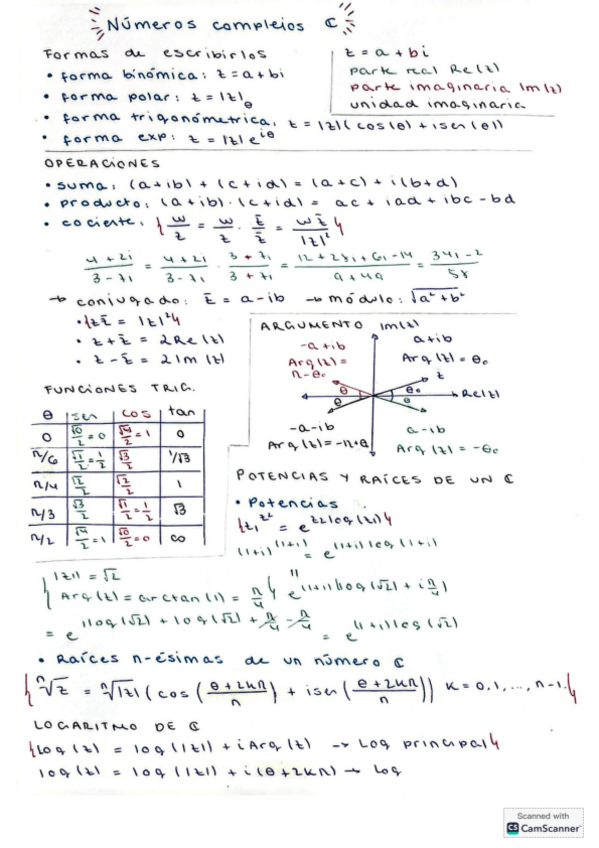 Números complejos ℂ
Formas de escribirlos
• forma binómica: z = a + bi
• forma polar: z = |z|θ
• forma trigonómetrica: z = |z|(cos(θ) + isen(θ))
• forma exp: z = |z| e^iθ
z = a + bi
parte real Re(z)
parte imaginaria Im(z)
unidad imaginaria
OPERACIONES
• suma: (a+ib) + (c+id) = (a+c) + i(b+d)
• producto: (a+ib)·(c+id) = ac + iad + ibc - bd
• cociente: { w/z = w/z · z̄/z̄ = wz̄/|z|² }
4+2i/3-7i = 4+2i/3-7i · 3+7i/3+7i = 12+28i+6i-14/9+49 = 34i-2/58
→ conjugado: z̄ = a-ib → módulo: √a²+b²
• {zz̄ = |z|²}
• z + z̄ = 2Re(z)
• z - z̄ = 2Im(z)
ARGUMENTO
Im(z)
-a+ib
Arg(z) =
π-θ₀
a+ib
Arg(z) = θ₀
z
θ
θ₀
Re(z)
θ
θ
-a-ib
Arg(z) = -π+θ
a-ib
Arg(z) = -θ₀
FUNCIONES TRIG.
θ | sen | cos | tan
0 | √0/2 = 0 | √4/2 = 1 | 0
π/6 | √1/2 = 1/2 | √3/2 | 1/√3
π/4 | √2/2 | √2/2 | 1
π/3 | √3/2 | √1/2 = 1/2 | √3
π/2 | √4/2 = 1 | √0/2 = 0 | ∞
POTENCIAS Y RAÍCES DE UN ℂ
• Potencias
{z₁^z² = e^z2log(z1)}
(1+i)^(1+i) = e^(1+i)log(1+i)
{ |z| = √2
Arg(z) = arctan(1) = π/4 }
e^(1+i)(log(√2) + iπ/4)
= e^ilog(√2) + log(√2) + π/4 - π/4 = e^(1+i)log(√2)
• Raíces n-ésimas de un número ℂ
{ ⁿ√z = ⁿ√|z| (cos(θ+2kπ/n) + isen(θ+2kπ/n)) k = 0,1,...,n-1. }
LOGARITMO DE ℂ
{log(z) = log(|z|) + iArg(z) → Log principal}
log(z) = log(|z|) + i(θ+2kπ) → log
Scanned with
CS CamScanner